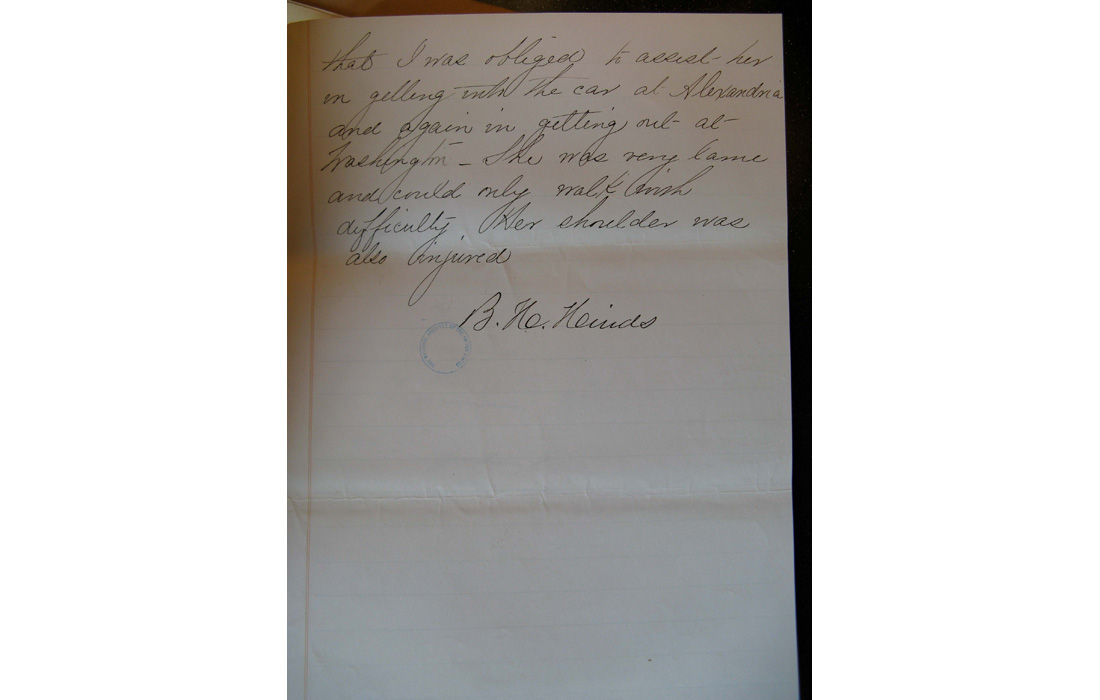 that I was obliged to assist her
in getting into the car at Alexandria
and again in getting out at
Washington - She was very lame
and could only walk with
difficulty. Her shoulder was
also injured
B. H. Hinds